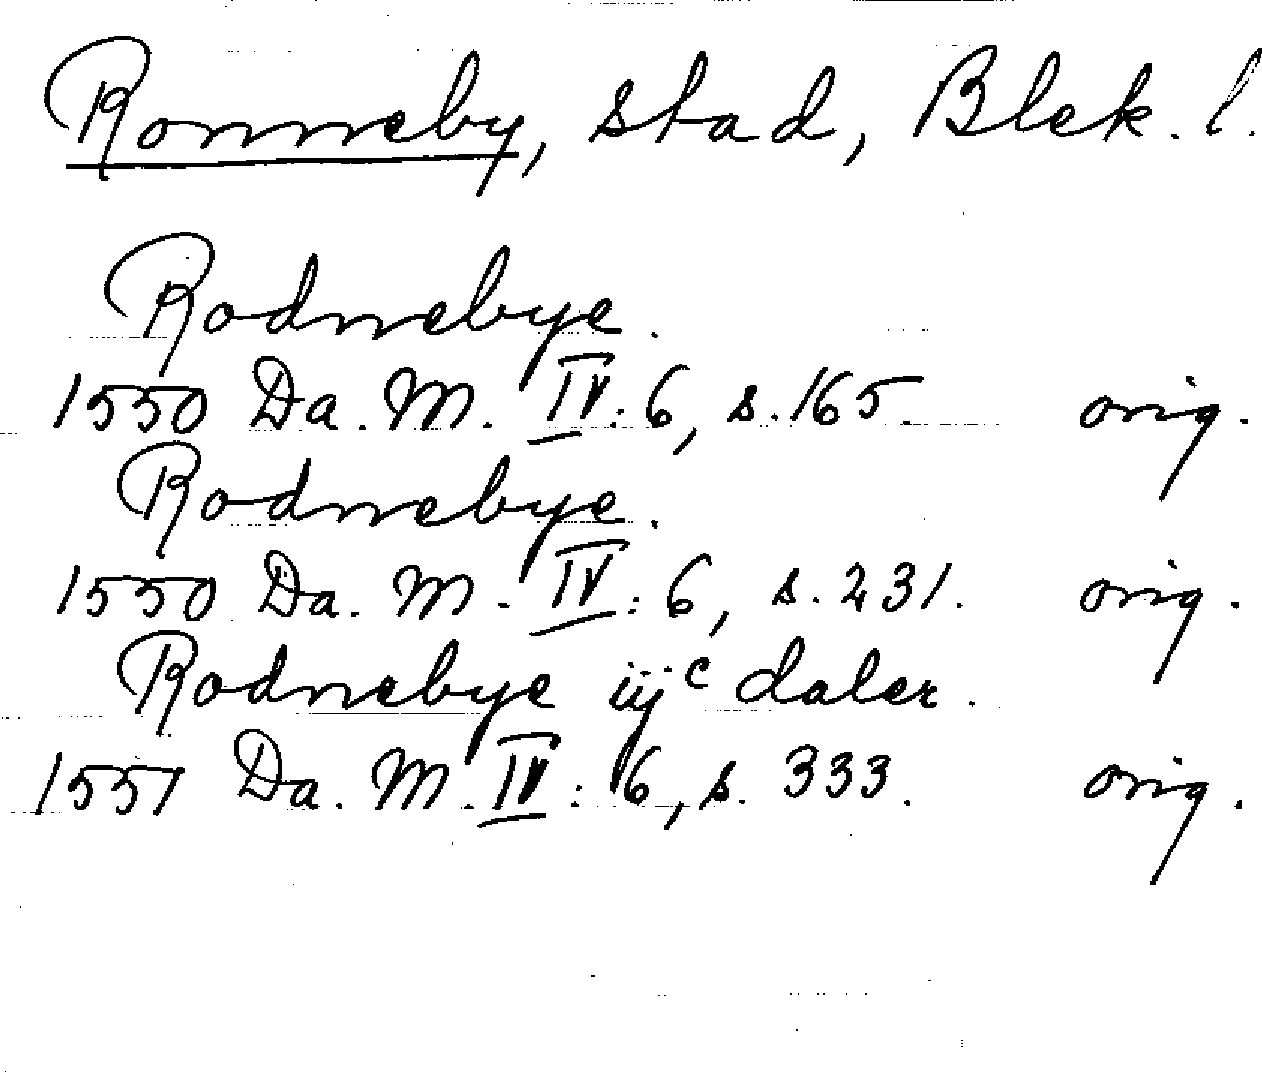 Ronneby, stad, Blek. l.
Rodnebye.
1550 Da. M. IV: 6, s. 165 orig.
Rodnebye.
1550 Da. M. IV: 6, s. 231. orig.
Rodnebye iijc daler.
1551 Da. M. IV: 6, s. 333. orig.